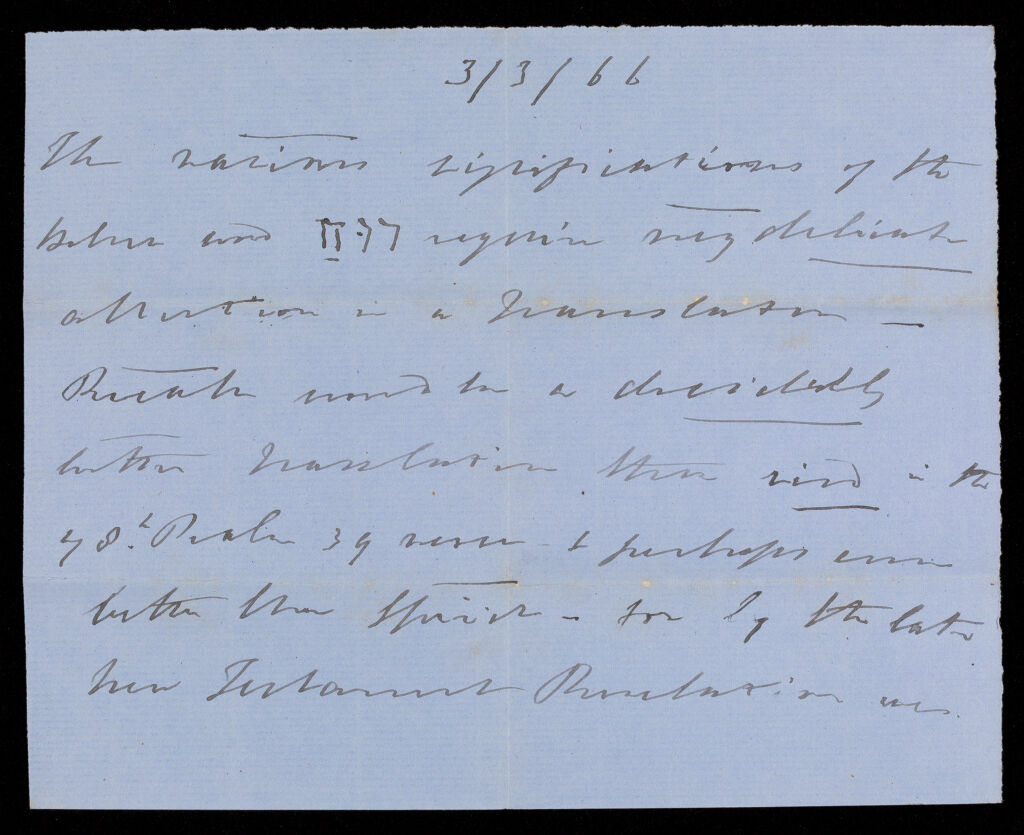 3/3/66
The various significations of the
hebrew word רוח require very delicate
attention in a Translation –
Breath would be a decidedly
better translation than wind in the
78th. Psalm 39 verse – & perhaps even
better than Spirit – for by the later
New Testament Revelation we